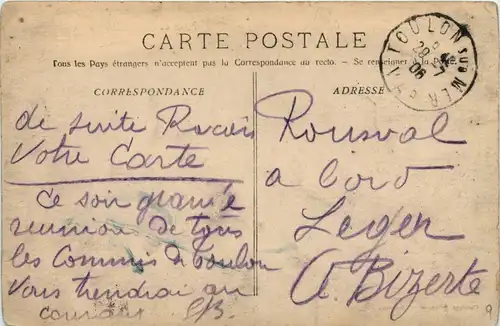 CARTE POSTALE
Tous les Pays étrangers n'acceptent pas la Correspondance au recto. — Se renseigner à la Poste.
CORRESPONDANCE
ADRESSE
TOULON SUR MER
28 -7
06
de suite
Votre Carte
Ce soir grande
reunion de tous
les Commis de Toulon
Vous tiendrai au
courant
Rousval
a bord
Leger
A Bizerte